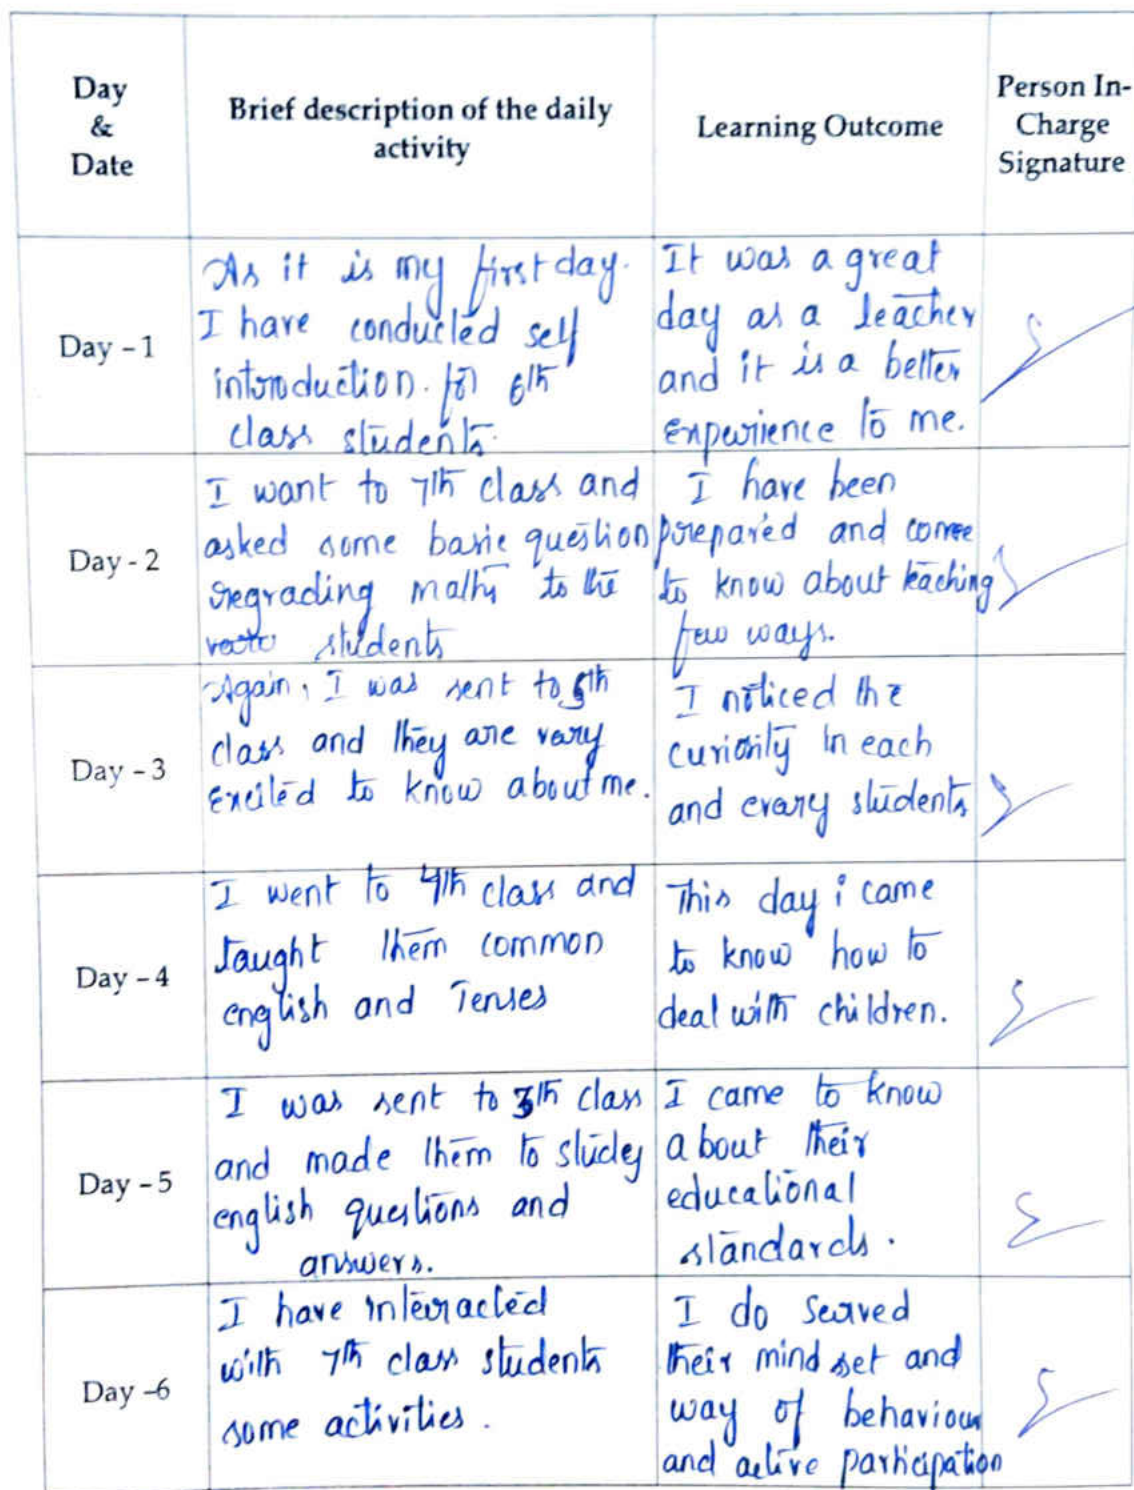 Day
&
Date
Brief description of the daily
activity
Learning Outcome
Person In-
Charge
Signature
Day - 1
As it is my first day.
I have conducted self
introduction. for 6th
class students.
It was a great
day as a teacher
and it is a better
experience to me.
Day - 2
I want to 7th class and
asked some basic question
regrading maths to the
students
I have been
prepared and come
to know about teaching
few ways.
Day - 3
Again, I was sent to 5th
class and they are vary
excited to know about me.
I noticed the
curiosity in each
and evary students
Day - 4
I went to 4th class and
taught them common
english and Tenses
This day i came
to know how to
deal with children.
Day - 5
I was sent to 3th class
and made them to study
english questions and
answers.
I came to know
about their
educational
standards.
Day -6
I have interacted
with 7th class students
some activities.
I do served
their mind set and
way of behaviour
and active participation